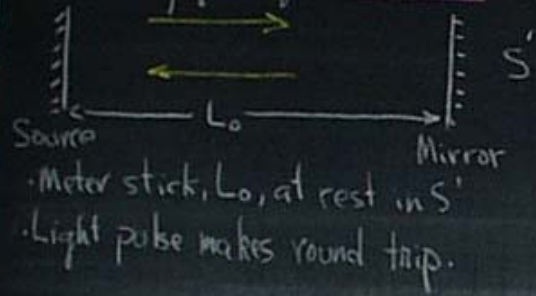 S'
L₀
Source
Mirror
·Meter stick, L₀, at rest in S'
·Light pulse makes round trip.